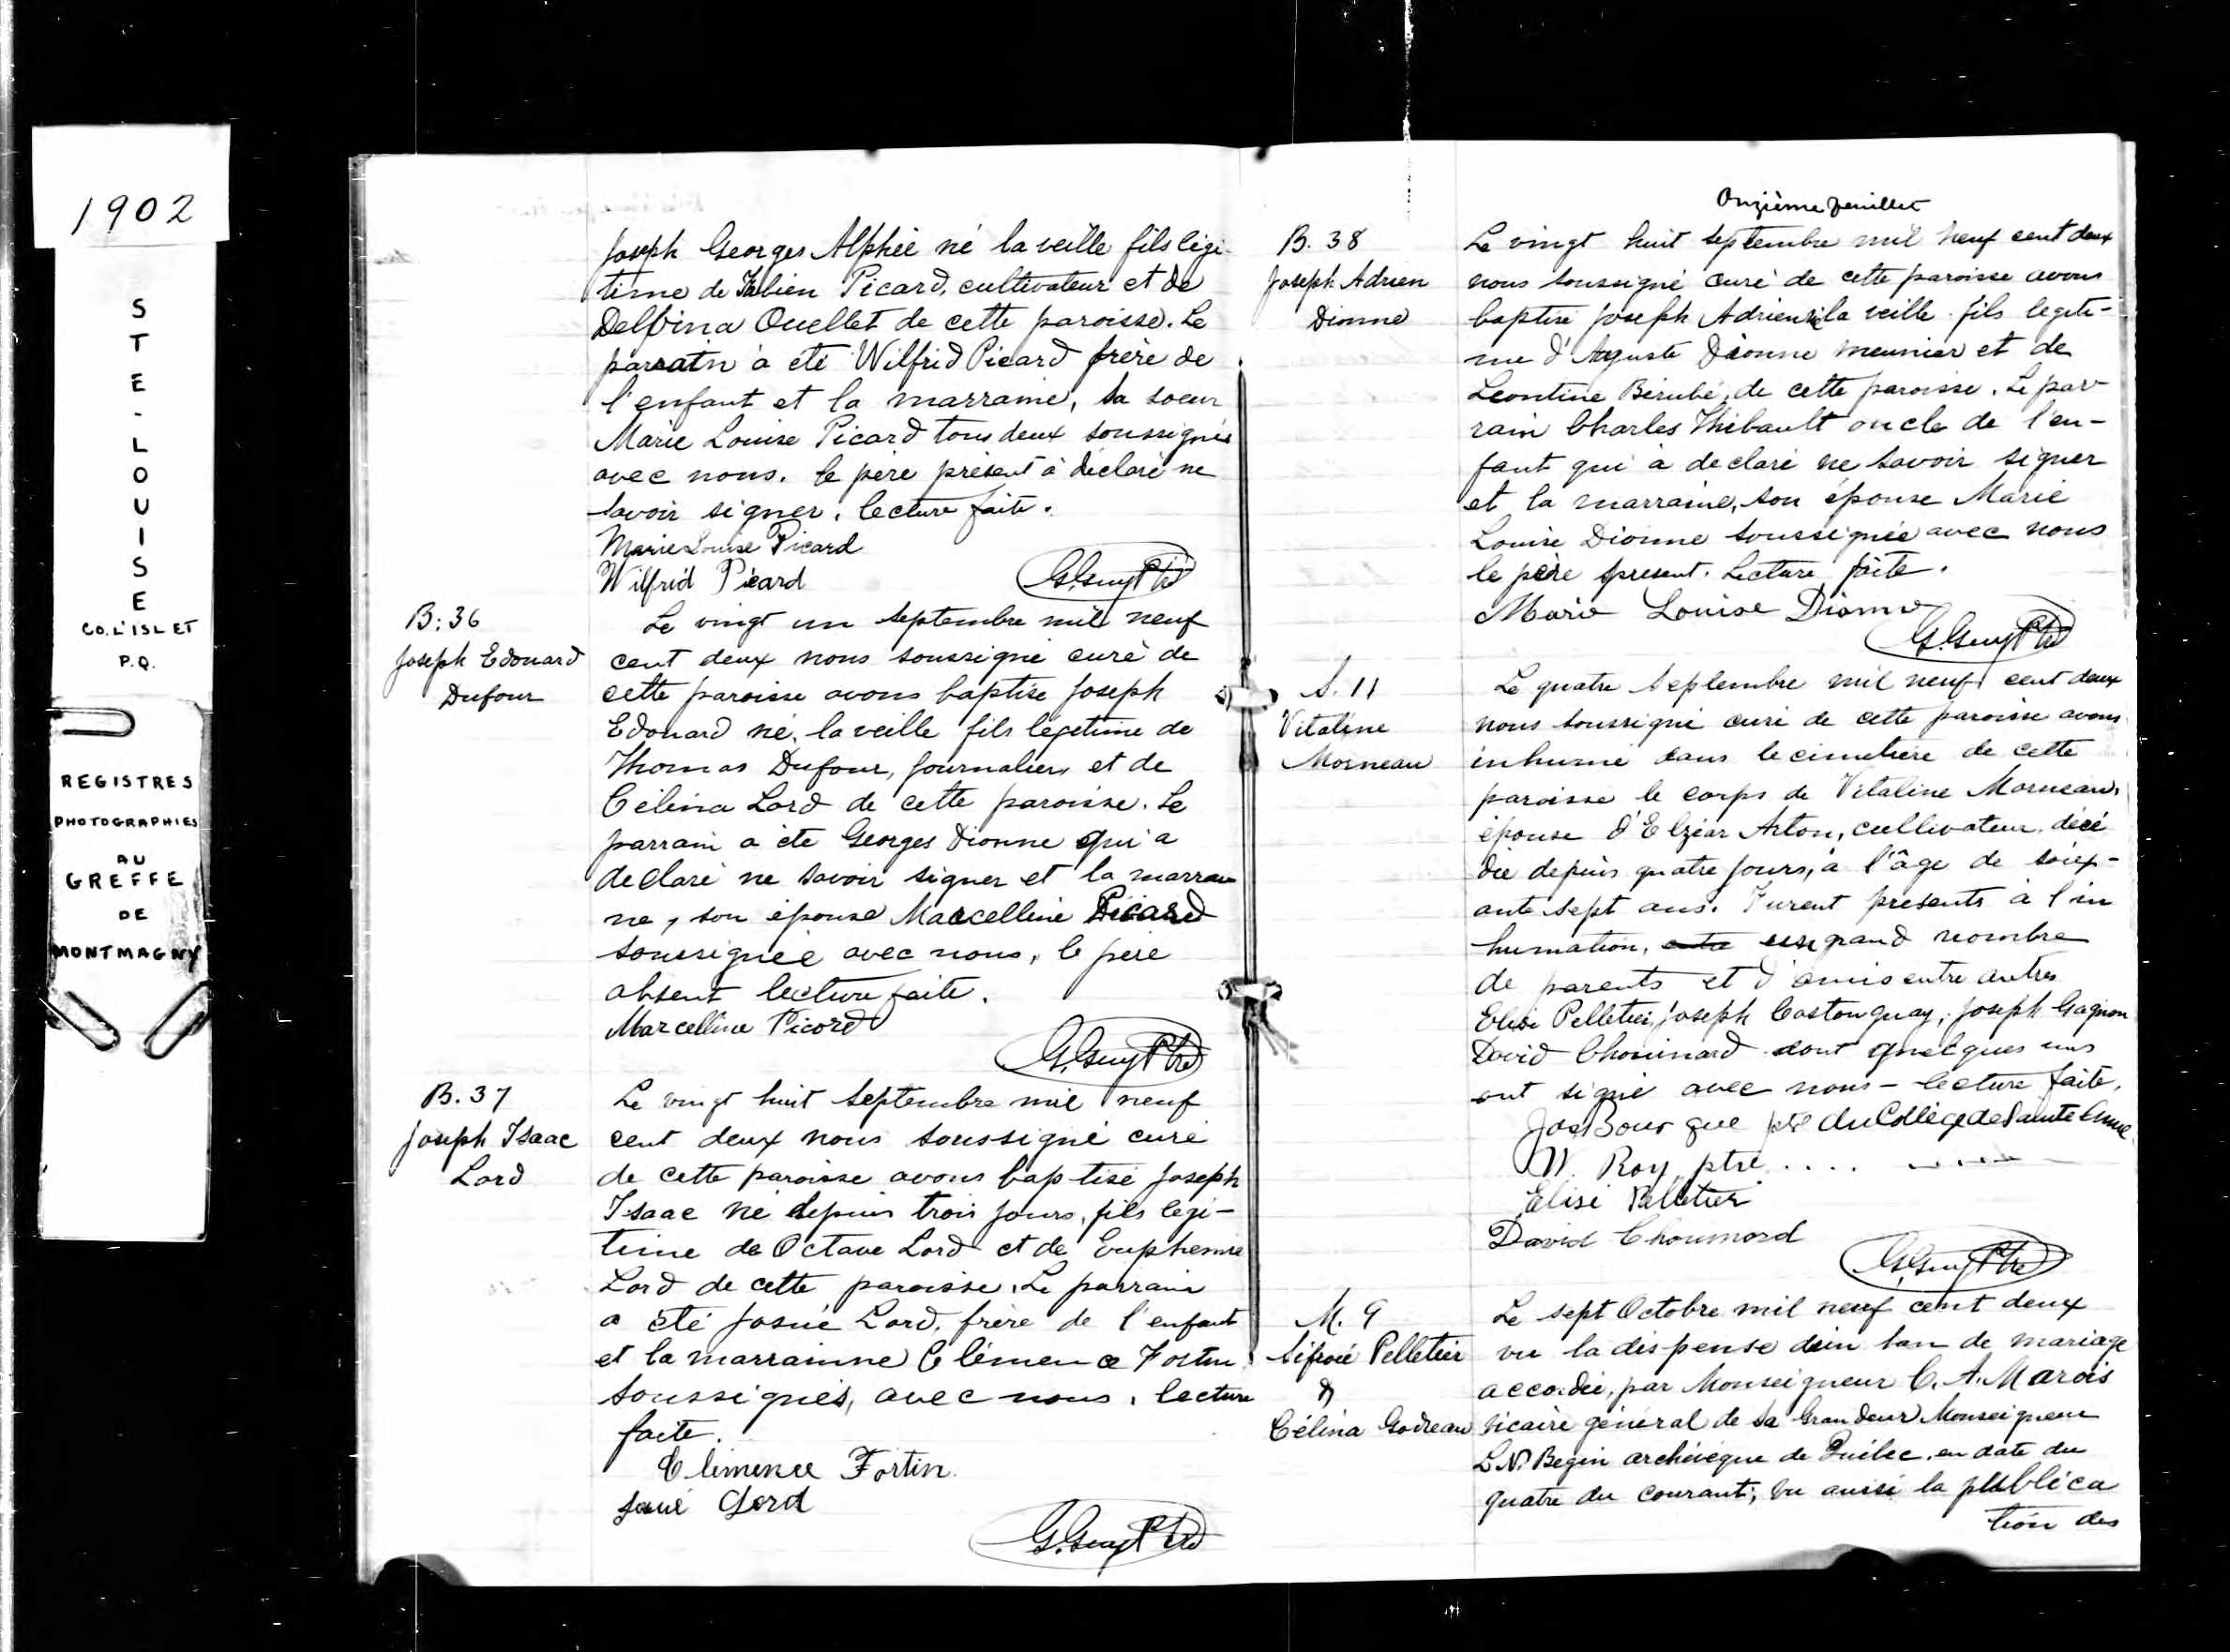 1902
S
T
E
-
L
O
U
I
S
E
CO. L'ISLET
P.Q.
REGISTRES
PHOTOGRAPHIES
AU
GREFFE
DE
MONTMAGNY
Joseph Georges Alphée né la veille fils légi-
time de Fabien Picard, cultivateur et de
Delvina Ouellet de cette paroisse. Le
parrain à été Wilfrid Picard frère de
l'enfant et la marraine, sa soeur
Marie Louise Picard tous deux soussignés
avec nous. le père présent à déclaré ne
savoir signer. lecture faite.
Marie Louise Picard
Wilfrid Picard G. Guy Ptre
B: 36
Joseph Edouard
Dufour
Le vingt un septembre mil neuf
cent deux nous soussigné curé de
cette paroisse avons baptisé Joseph
Edouard né, la veille fils légetime de
Thomas Dufour, journaliers et de
Célina Lord de cette paroisse. Le
parrain a été Georges Dionne qui a
declaré ne savoir signer et la marrai
ne, son épouse Marcelline Picard
soussignée avec nous, le père
absent lecture faite.
Marcelline Picord
G. Guy Ptre
B. 37
Joseph Isaac
Lord
Le vingt huit septembre mil neuf
cent deux nous soussigné curé
de cette paroisse avons baptisé Joseph
Isaac né depuis trois jours, fils legi-
time de Octave Lord et de Euphemie
Lord de cette paroisse. Le parrain
a été Josué Lord, frère de l'enfant
et la marrainne Clémence Fortin
soussignés, avec nous. lecture
faite.
Clémence Fortin.
Josué Lord
G. Guy Ptre
Onzième feuillet
B. 38
Joseph Adrien
Dionne
Le vingt huit septembre mil neuf cent deux
nous soussigné curé de cette paroisse avons
baptisé Joseph Adrien né la veille fils legiti-
me d'Auguste Dionne meunier et de
Leontine Bérubé, de cette paroisse. Le par-
rain Charles Thibault oncle de l'en-
fant qui à declaré ne savoir signer
et la marraine, son épouse Marie
Louise Dionne soussignée avec nous
le père present. Lecture faite.
Marie Louise Dionne
G. Guy Ptre
S. 11
Vitaline
Morneau
Le quatre septembre mil neuf cent deux
nous soussigné curé de cette paroisse avons
inhumé dans le cimetiere de cette
paroisse le corps de Vitaline Morneau,
épouse d'Elzéar Anton, cultivateur, décé
dée depuis quatre jours, à l'âge de soix-
ante sept ans. Furent présents à l'in
humation, un grand nombre
de parents et d'amis entre autres
Elisé Pelletier, Joseph Castonguay, Joseph Gagnon
David Chouinard dont quelques uns
ont signé avec nous - lecture faite,
Jos Bourque ptre du Collège de Sainte Anne
W. Roy, ptre ....
Elisé Pelletier
David Chouinard
G. Guy Ptre
M. 9
Sifroié Pelletier
&
Célina Godreau
Le sept Octobre mil neuf cent deux
vu la dispense d'un ban de mariage
accordée, par Monseigneur C. A. Marois
vicaire général de Sa Grandeur Monseigneur
L. N. Begin archévêque de Québec, en date du
quatre du courant; vu aussi la publica
tion des